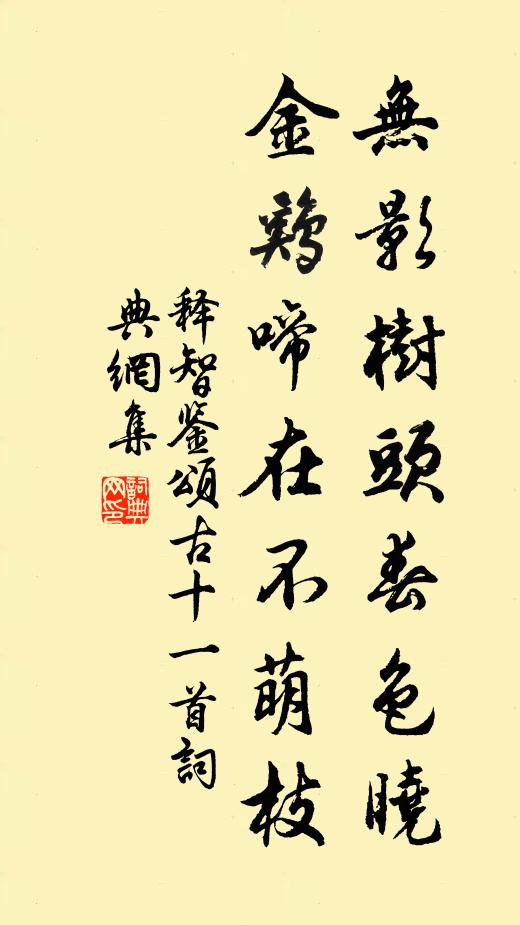 無影樹頭春色曉
金鷄啼在不萌枝
释智鉴頌古十一首詞
典網集
詞典网印